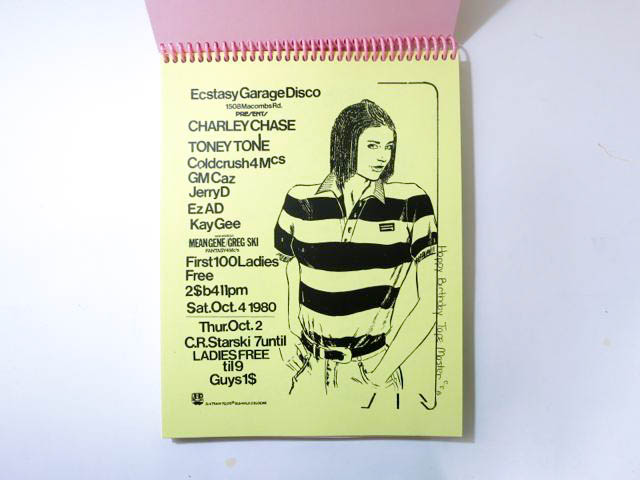 Ecstasy Garage Disco
1508 Macombs Rd.
PRESENTS
CHARLEY CHASE
TONEY TONE
Coldcrush 4 Mcs
GM Caz
Jerry D
Ez AD
Kay Gee
MEAN GENE/GREG SKI
FANTASY 4 Mc's
First 100 Ladies
Free
2$ b4 11pm
Sat. Oct. 4 1980
Thur. Oct. 2
C.R. Starski 7 until
LADIES FREE
til 9
Guys 1$
Happy Birthday Tape Master